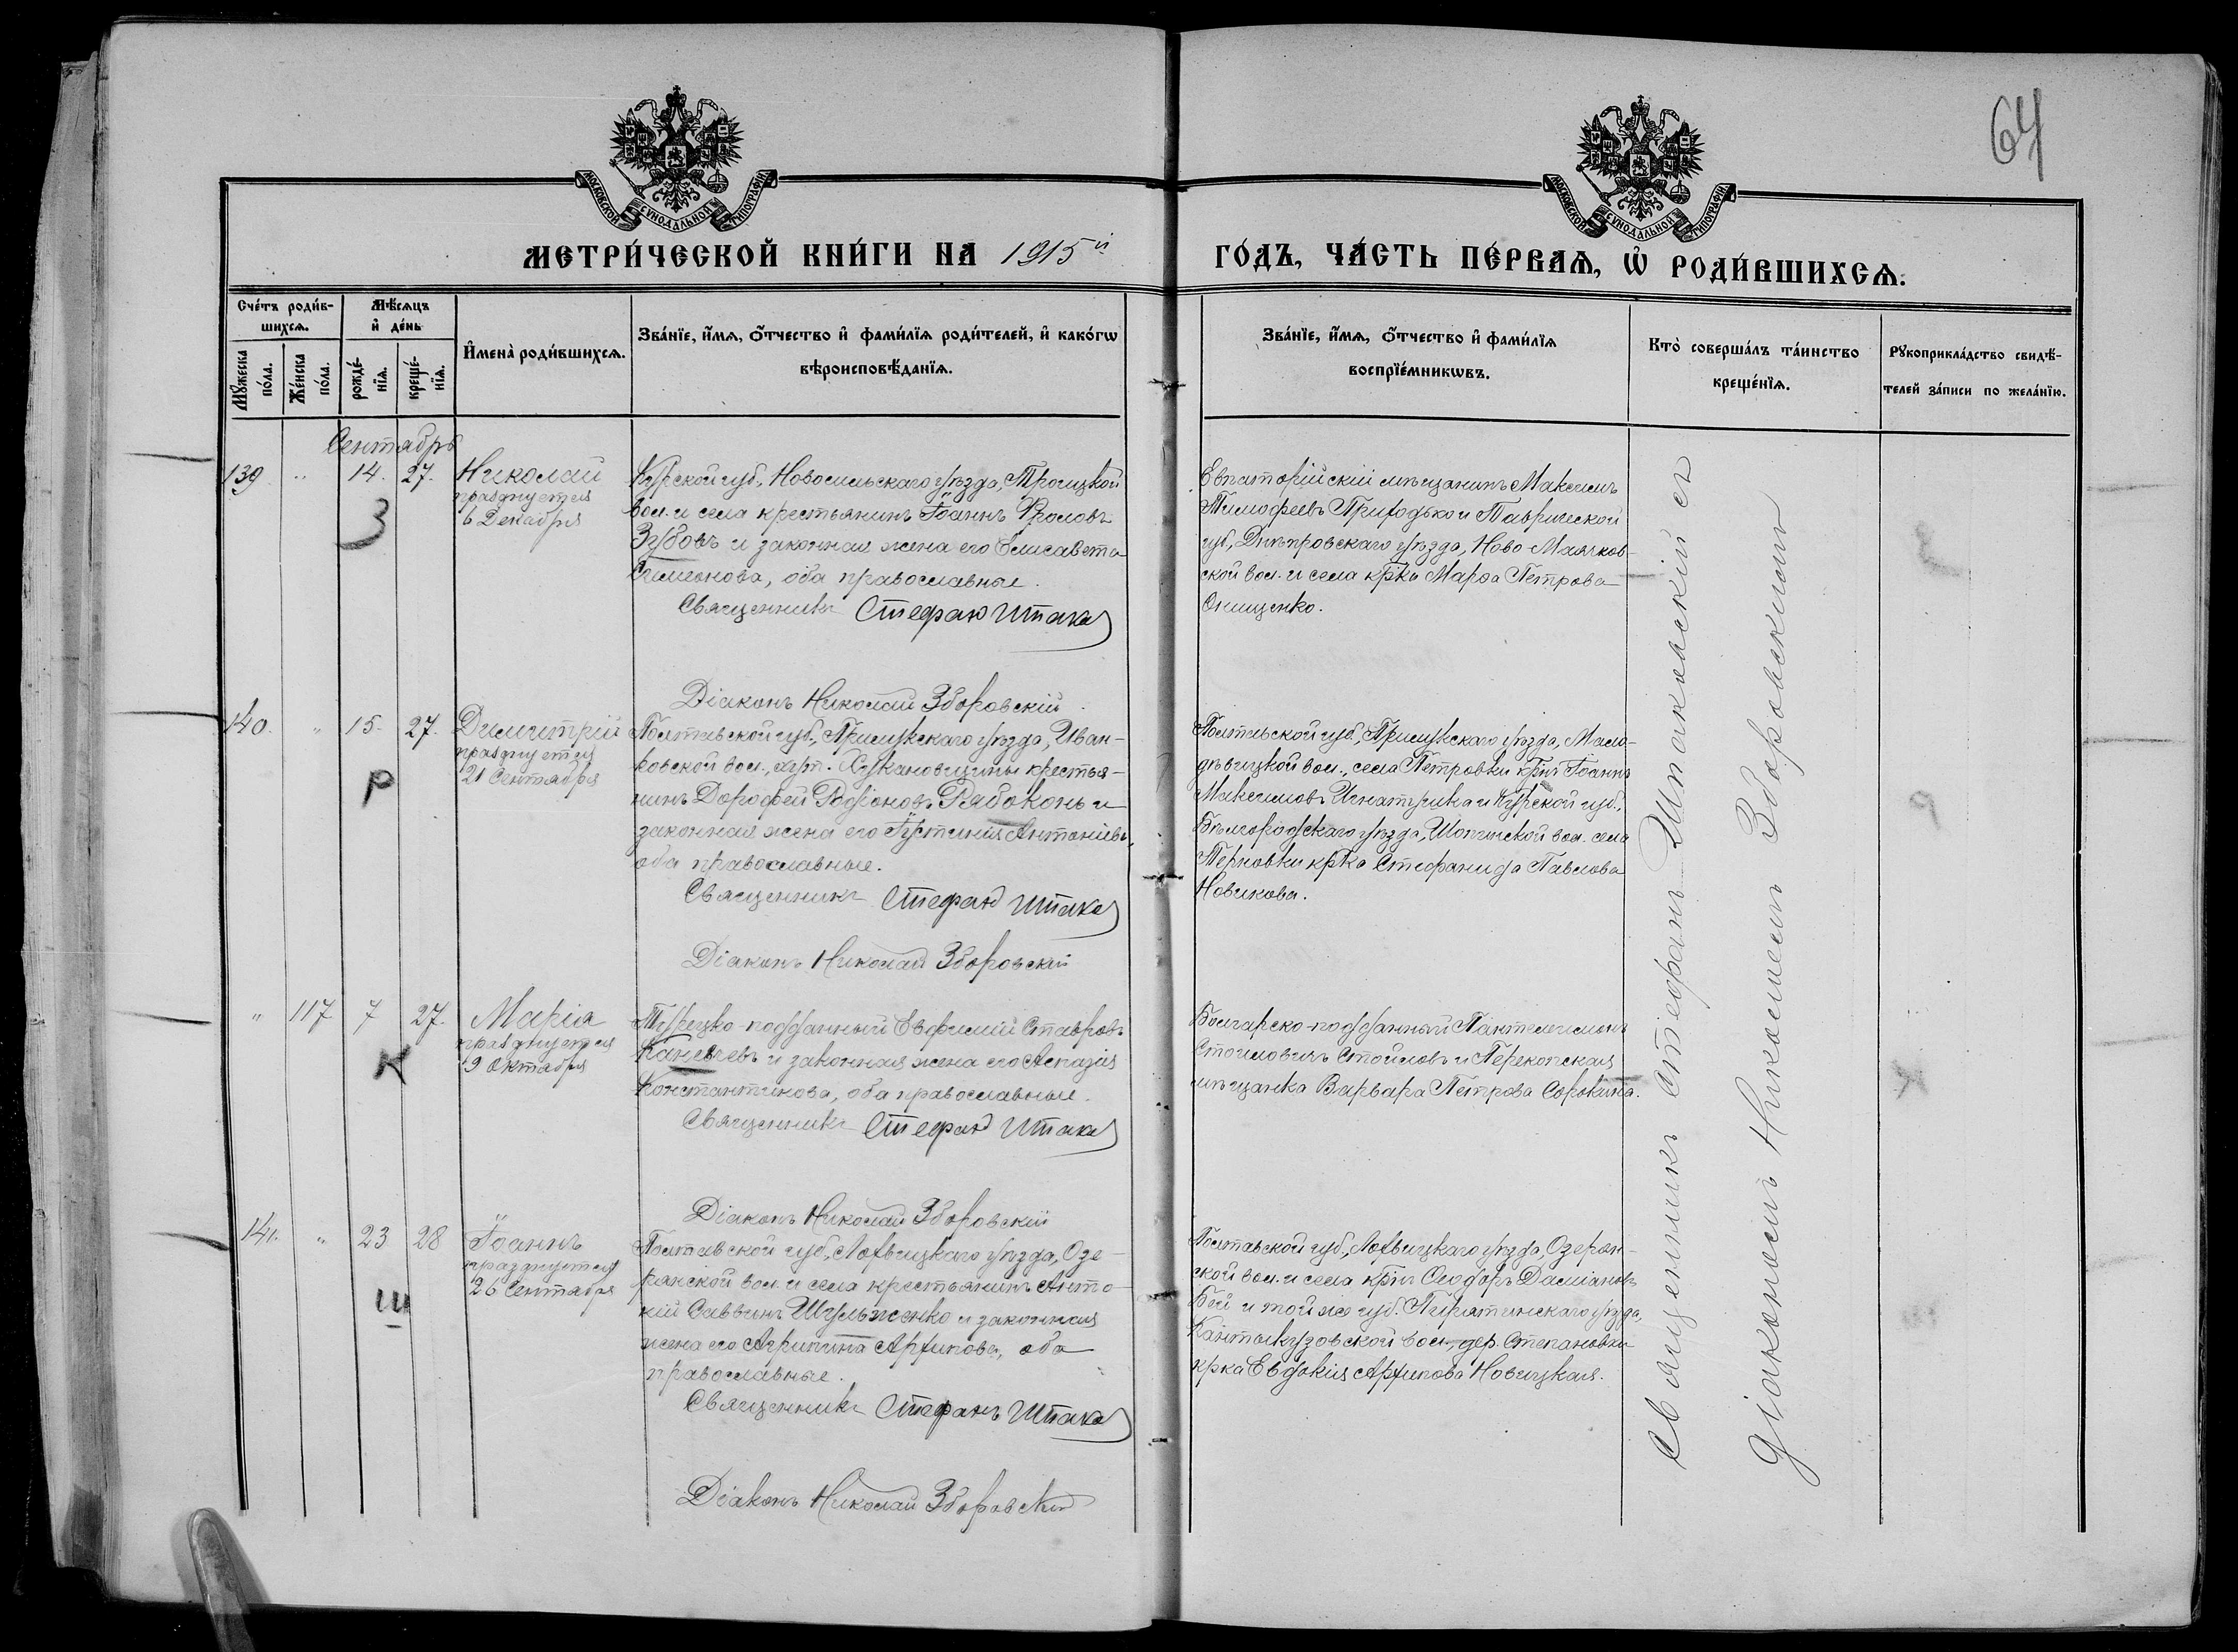 64
МОСКОВСКОЙ СУНОДАЛЬНОЙ ТИПОГРАФІИ
МОСКОВСКОЙ СУНОДАЛЬНОЙ ТИПОГРАФІИ
МЕТРИ́ЧЕСКОЙ КНИ́ГИ НА 1915й
ГО́ДЪ, ЧА́СТЬ ПЕ́РВАѦ, Ѡ҆ РОДИ́ВШИХСѦ.
Сче́тъ роди́в-
шихсѧ.
Мѣ́сѧцъ
и҆ де́нь
Мꙋ́жеска
по́ла.
Же́нска
по́ла.
рожде́-
нїѧ.
креще́-
нїѧ.
И҆мена̀ роди́вшихсѧ.
Зва́нїе, и҆́мѧ, ѻ҆́тчество и҆ фами́лїѧ роди́телей, и҆ како́гѡ
вѣроисповѣ́данїѧ.
Зва́нїе, и҆́мѧ, ѻ҆́тчество и҆ фами́лїѧ
воспрїе́мникѡвъ.
Кто̀ соверша́лъ та́инство
креще́нїѧ.
Рꙋкоприкла́дство свидѣ́-
телей за́писи по жела́нїю.
Сентябрь
139 " 14. 27. Николай
празднуется
6 Декабря
З
Курской губ., Новосильскаго уѣзда, Троицкой
вол. и села крестьянинъ Іоаннъ Фроловъ
Зубовъ и законная жена его Елисавета
Симеонова, оба православные.
Священникъ Стефанъ Шпака
Діаконъ Николай Зборовскій
Евпаторійскій мѣщанинъ Максимъ
Тимофеевъ Приходько и Таврической
губ., Днѣпровскаго уѣзда, Ново-Маячков-
ской вол. и села крка Марѳа Петрова
Онищенко.
140. " 15. 27. Димитрій
празднуется
21 Сентября
Р
Полтавской губ., Прилукскаго уѣзда, Иван-
ковской вол., хут. крестья-
нинъ Дорофей Родіоновъ Рябоконь и
законная жена его Іустинія Антоніева,
оба православные.
Священникъ Стефанъ Шпака
Діаконъ Николай Зборовскій
Полтавской губ., Прилукскаго уѣзда, Мало-
дѣвицкой вол., села Петровки крнъ Іоаннъ
Максимовъ Игнатушка и Курской губ.,
Бѣлгородскаго уѣзда, Шопинской вол. села
Терновки крка Стефанида Павлова
Новикова.
" 117 7 27. Марія
празднуется
9 Октября
К
Турецко-подданный Евфимій Ставровъ
Каневчевъ и законная жена его Аспазія
Константинова, оба православные.
Священникъ Стефанъ Шпака
Діаконъ Николай Зборовскій
Болгарско-подданный Пантелеимонъ
Стоиловичъ Стойловъ и Перекопская
мѣщанка Варвара Петрова Сорокина.
141. " 23 28 Іоаннъ
празднуется
26 Сентября
Ш
Полтавской губ., Лохвицкаго уѣзда, Озе-
рянской вол. и села крестьянинъ Анто-
ній Саввинъ Шульженко и законная
жена его Агрипина Архипова, оба
православные.
Священникъ Стефанъ Шпака
Діаконъ Николай Зборовскій
Полтавской губ., Лохвицкаго уѣзда, Озерян-
ской вол. и села крнъ Ѳеодоръ Даміановъ
Бей и той же губ. Пирятинскаго уѣзда,
вол., дер. Степановки
крка Евдокія Архипова Новицкая.
Священникъ Стефанъ Шпаковскій съ
діакономъ Николаемъ Зборовскимъ